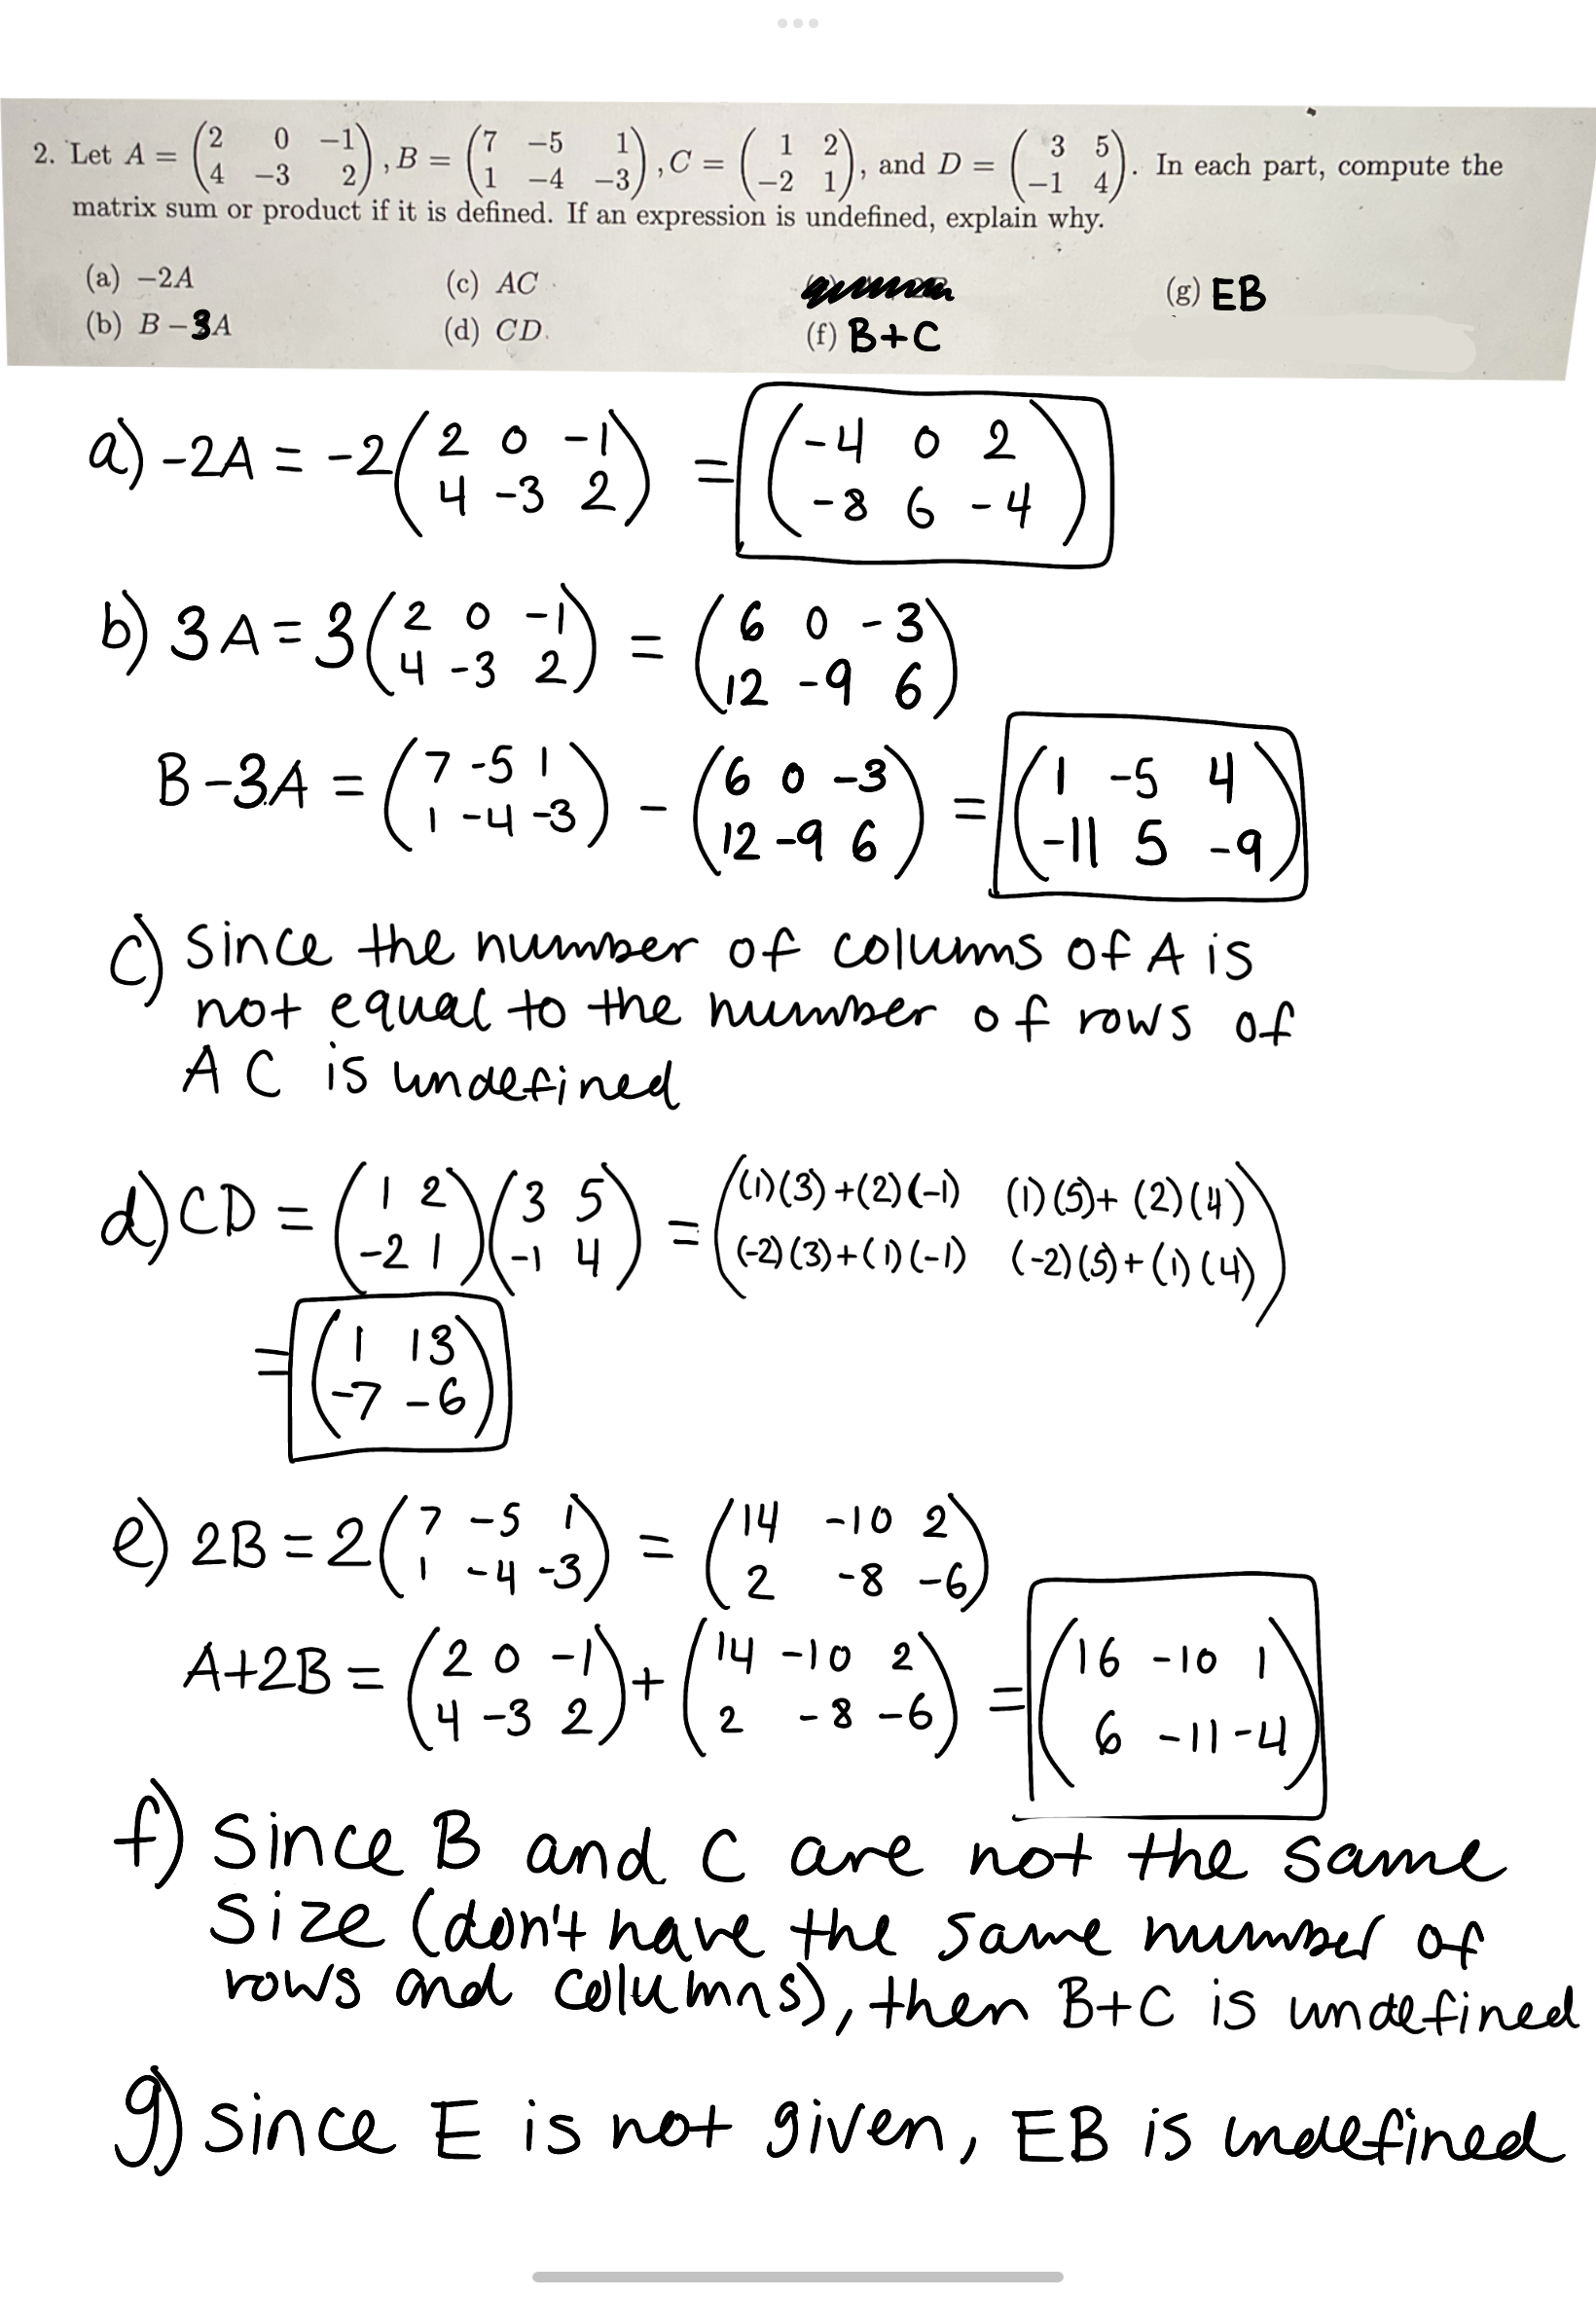 2. Let A = (2 0 −1; 4 −3 2), B = (7 −5 1; 1 −4 −3), C = (1 2; −2 1), and D = (3 5; −1 4). In each part, compute the
matrix sum or product if it is defined. If an expression is undefined, explain why.
(a) −2A (c) AC (g) EB
(b) B−3A (d) CD. (f) B+C
a) -2A = -2(2 0 -1; 4 -3 2) = (-4 0 2; -8 6 -4)
b) 3A = 3(2 0 -1; 4 -3 2) = (6 0 -3; 12 -9 6)
B-3A = (7 -5 1; 1 -4 -3) - (6 0 -3; 12 -9 6) = (1 -5 4; -11 5 -9)
c) since the number of colums of A is
not equal to the number of rows of
A C is undefined
d) CD = (1 2; -2 1)(3 5; -1 4) = ((1)(3)+(2)(-1) (1)(5)+(2)(4); (-2)(3)+(1)(-1) (-2)(5)+(1)(4))
= (1 13; -7 -6)
e) 2B = 2(7 -5 1; 1 -4 -3) = (14 -10 2; 2 -8 -6)
A+2B = (2 0 -1; 4 -3 2) + (14 -10 2; 2 -8 -6) = (16 -10 1; 6 -11 -4)
f) Since B and C are not the same
size (don't have the same number of
rows and columns), then B+C is undefined
g) since E is not given, EB is undefined